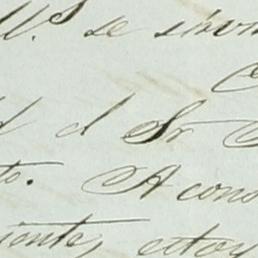 V.S se sirv
d el Sr
to. A cons
iente, estoy